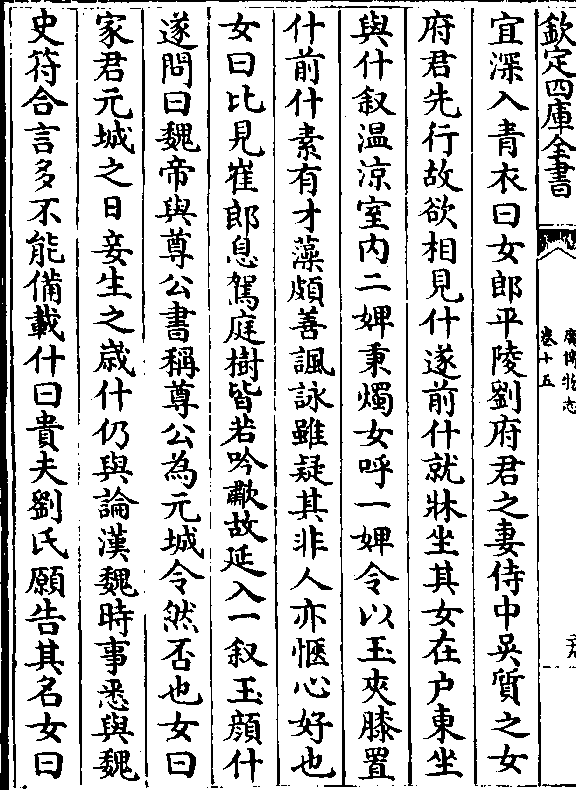 欽定四庫全書
廣博物志
卷十五
宜深入青衣曰女郎平陵劉府君之妻侍中吳質之女
府君先行故欲相見什遂前什就牀坐其女在户東坐
與什叙温涼室内二婢秉燭女呼一婢令以玉夾膝置
什前什素有才藻頗善諷詠雖疑其非人亦愜心好也
女曰比見崔郎息駕庭樹皆若吟歗故延入一叙玉顔什
遂問曰魏帝與尊公書稱尊公為元城令然否也女曰
家君元城之日妾生之歳什仍與論漢魏時事悉與魏
史符合言多不能備載什曰貴夫劉氏願告其名女曰